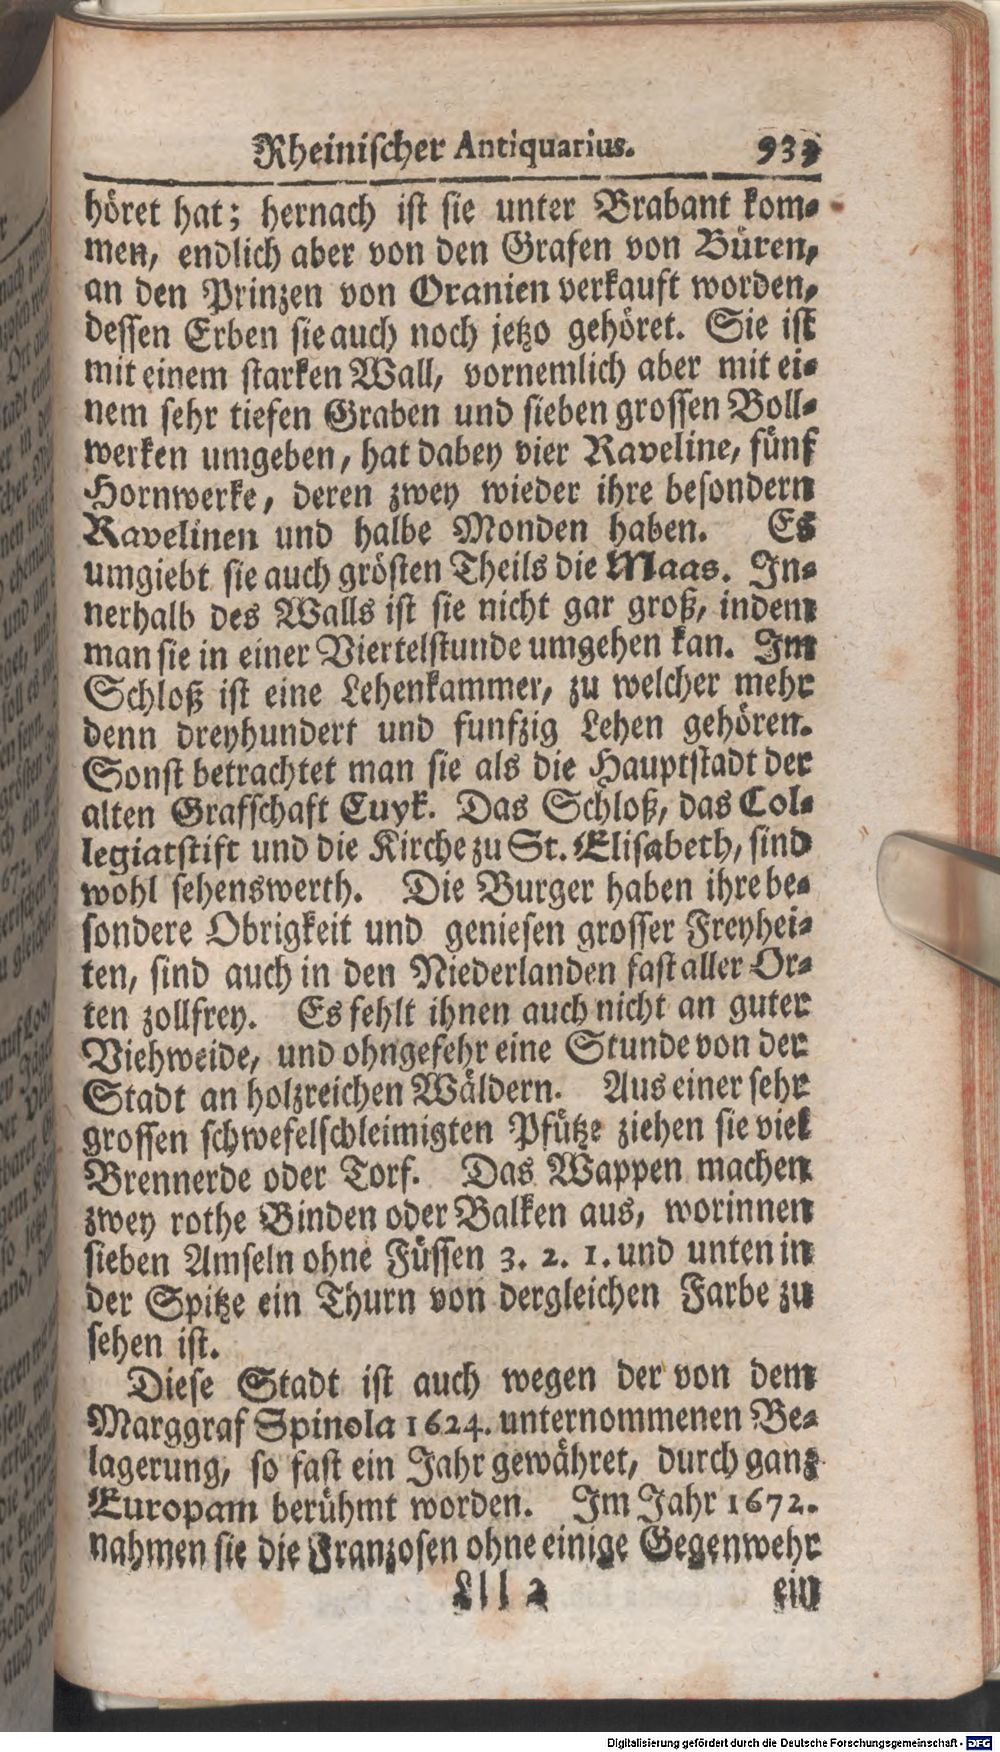 Rheinischer Antiquarius. 933
höret hat; hernach ist sie unter Brabant kom-
men, endlich aber von den Grafen von Büren,
an den Prinzen von Oranien verkauft worden,
dessen Erben sie auch noch jetzo gehöret. Sie ist
mit einem starken Wall, vornemlich aber mit ei-
nem sehr tiefen Graben und sieben grossen Boll-
werken umgeben, hat dabey vier Raveline, fünf
Hornwerke, deren zwey wieder ihre besondern
Ravelinen und halbe Monden haben. Es
umgiebt sie auch grösten Theils die Maas. In-
nerhalb des Walls ist sie nicht gar groß, indem
man sie in einer Viertelstunde umgehen kan. Im
Schloß ist eine Lehenkammer, zu welcher mehr
denn dreyhundert und funfzig Lehen gehören.
Sonst betrachtet man sie als die Hauptstadt der
alten Grafschaft Cuyk. Das Schloß, das Col-
legiatstift und die Kirche zu St. Elisabeth, sind
wohl sehenswerth. Die Burger haben ihre be-
sondere Obrigkeit und geniesen grosser Freyhei-
ten, sind auch in den Niederlanden fast aller Or-
ten zollfrey. Es fehlt ihnen auch nicht an guter
Viehweide, und ohngefehr eine Stunde von der
Stadt an holzreichen Wäldern. Aus einer sehr
grossen schwefelschleimigten Pfütze ziehen sie viel
Brennerde oder Torf. Das Wappen machen
zwey rothe Binden oder Balken aus, worinnen
sieben Amseln ohne Füssen 3. 2. 1. und unten in
der Spitze ein Thurn von dergleichen Farbe zu
sehen ist.
Diese Stadt ist auch wegen der von dem
Marggraf Spinola 1624. unternommenen Be-
lagerung, so fast ein Jahr gewähret, durch ganz
Europam berühmt worden. Im Jahr 1672.
nahmen sie die Franzosen ohne einige Gegenwehr
Lll 2 ein
Digitalisierung gefördert durch die Deutsche Forschungsgemeinschaft - DFG